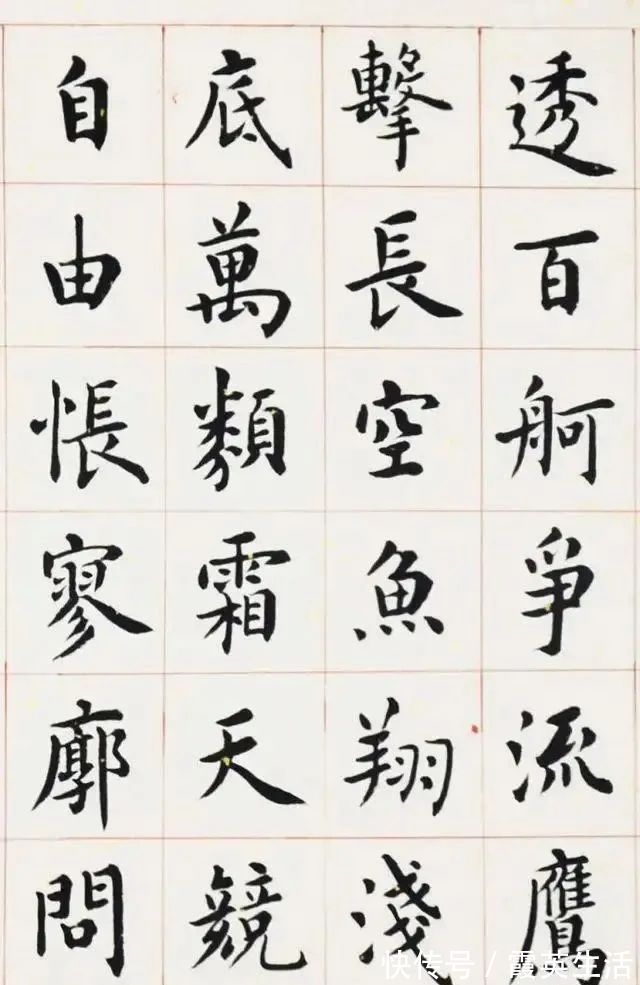 透百舸爭流鷹
擊長空魚翔淺
底萬類霜天競
自由悵寥廓問
快传号／霞英生活